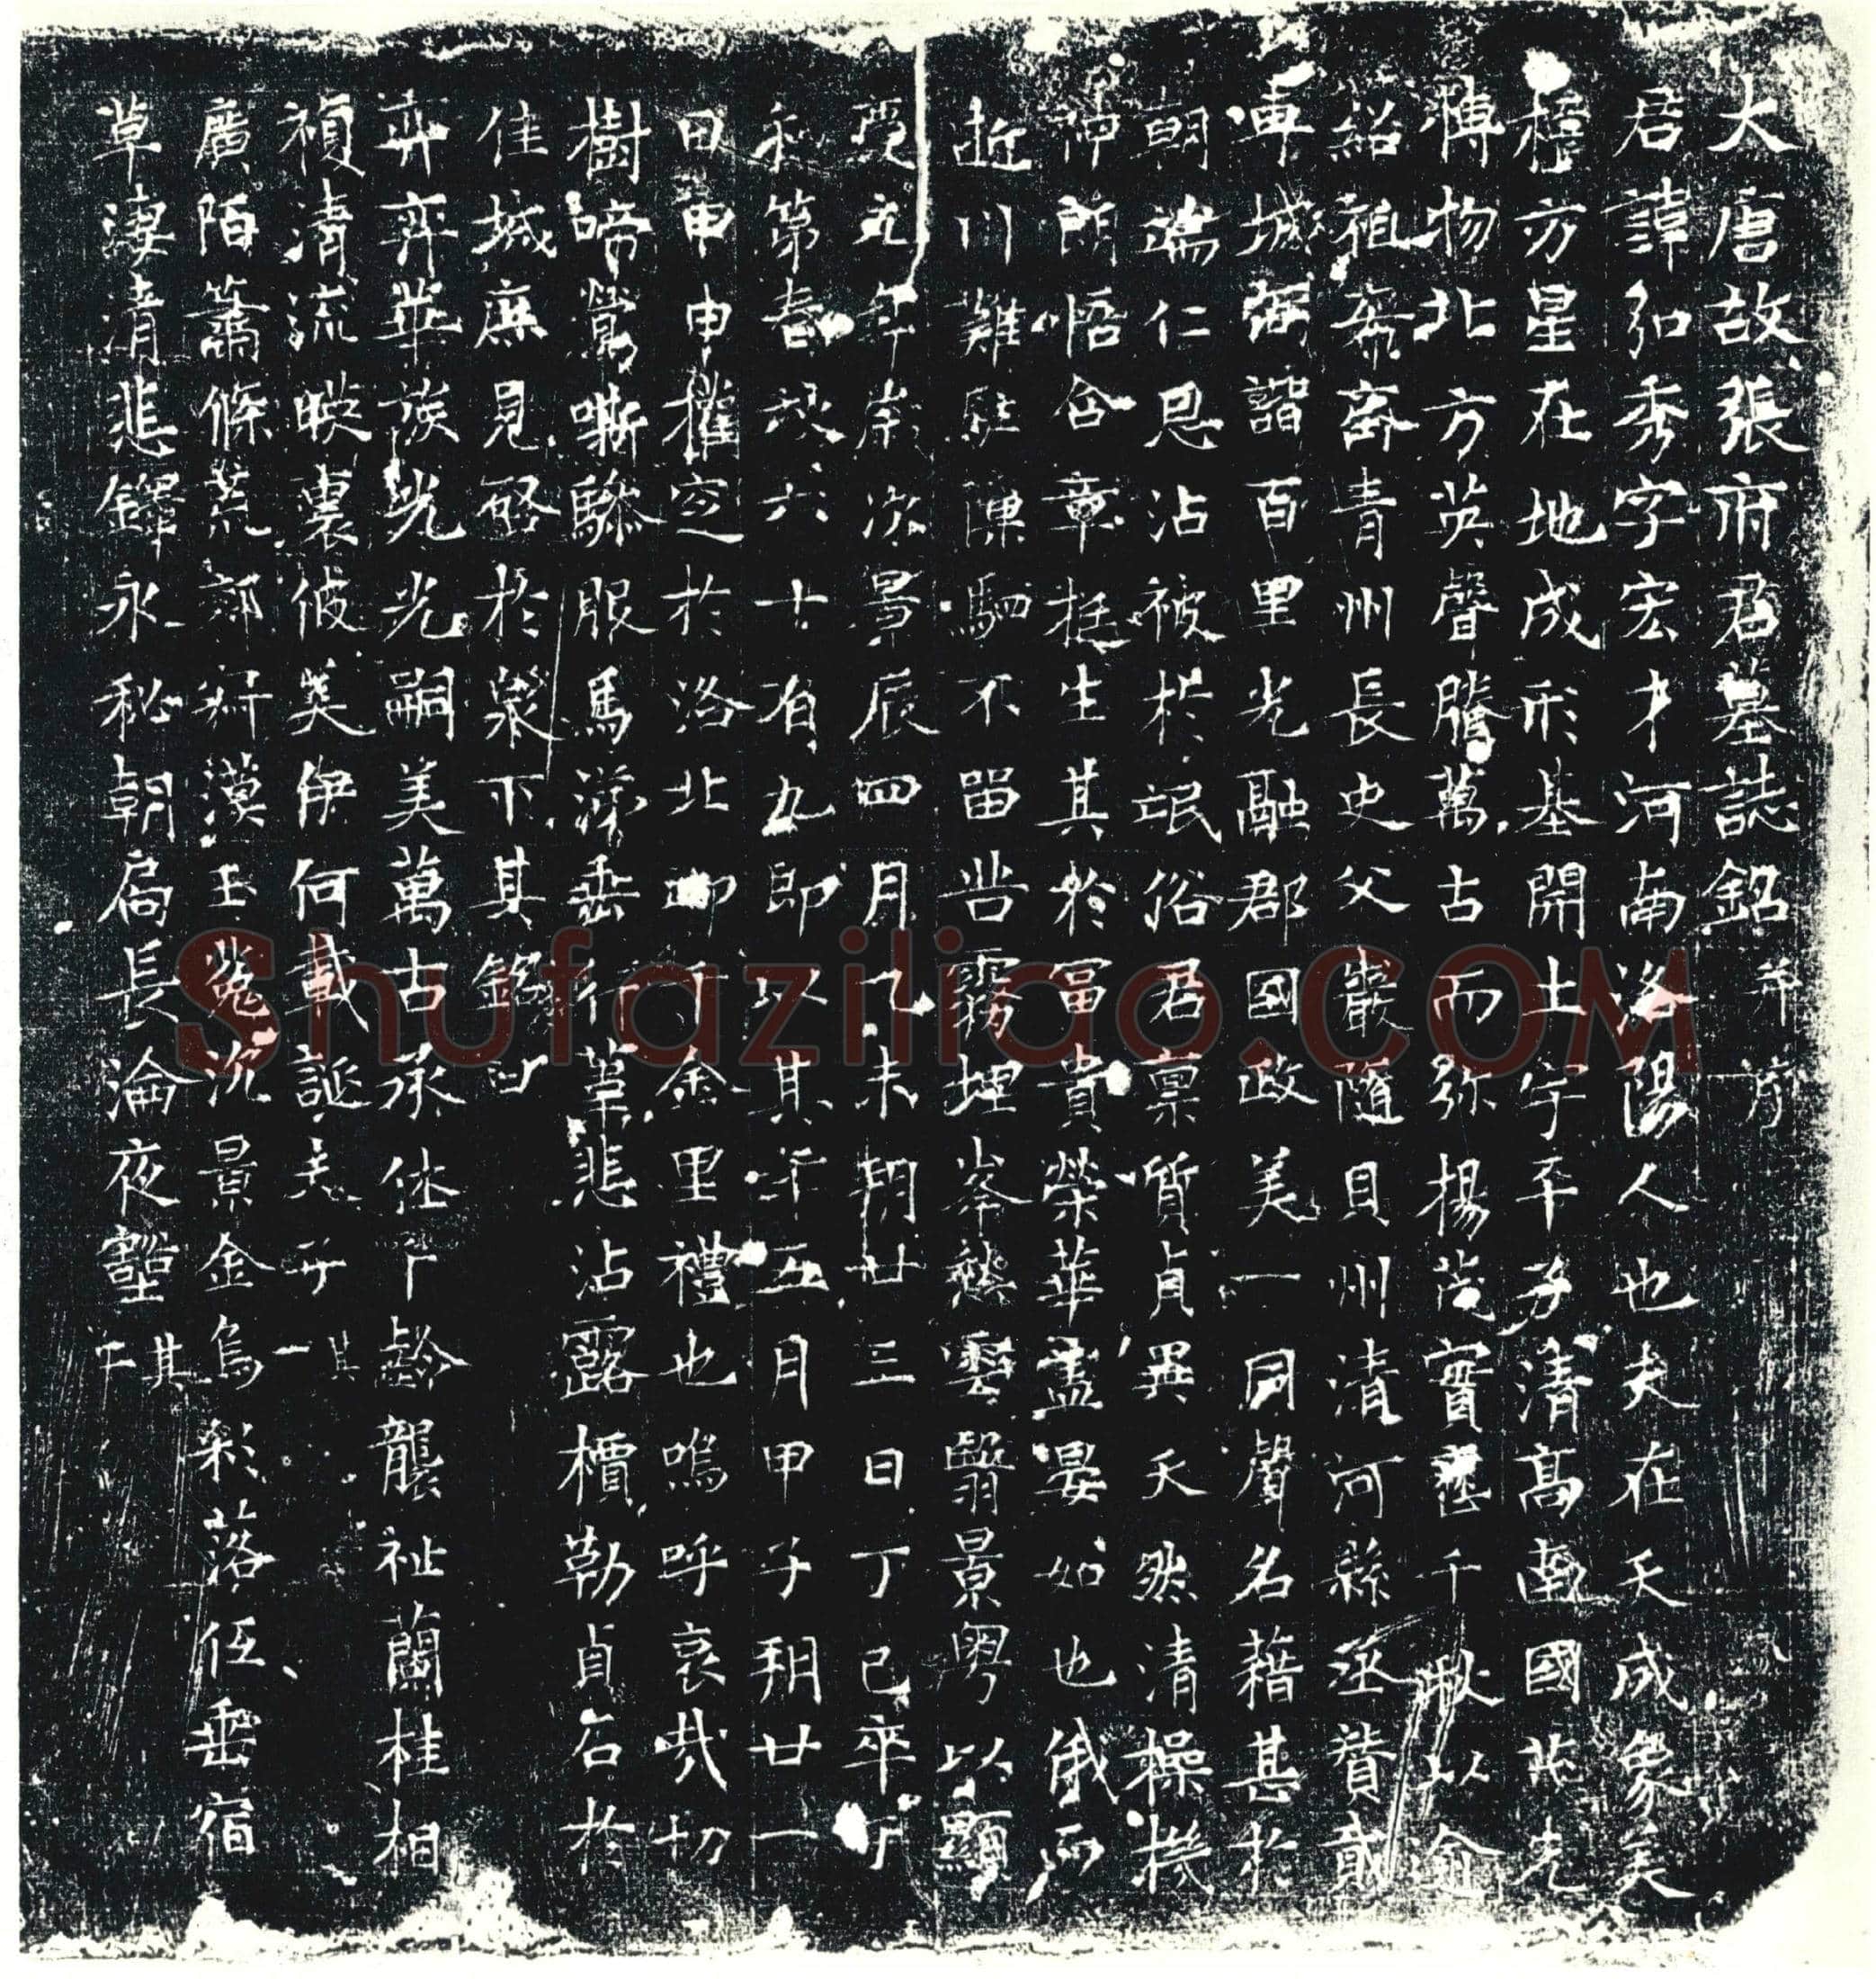 大唐故張府君墓誌銘并序
君諱弘秀字宏才河南洛陽人也夫在天成象美
方星在地成形基開土宇平分清高南國光
博物北方英聲騰萬古而弥楊茂實千秋以金
紹祖齋青州長史父巖隨貝州清河縣丞贊貳
專城弼諧百里光融郡國政美一同聲名藉甚於
朝端仁恩沾被於氓俗君稟質貞異天然清操機
神所悟含章挺生其於冨貴榮華盡晏如也俄而
逝川難駐隟駟不留岩霧埋峯愁雲翳景粤以顯
慶元年歲次景辰四月乙未朔廿三日丁巳卒於
私第春秋六十有九即以其年五月甲子朔廿一
日甲申權窆於洛北邙金里禮也嗚呼哀哉切
樹啼鶯嘶驂服馬滂垂行葦悲沾露檟勒貞石於
佳城庶見啓於泉下其銘曰
弈弈華族光光嗣美萬古承休千齡襲祉蘭桂相
清流映裏彼美伊何載誕夫子其一
廣陌蕭條荒郊漠玉兔沉景金烏彩落低垂宿
草淒清悲鐸永秘朝扃長淪夜壑其二
Shufaziliao.COM